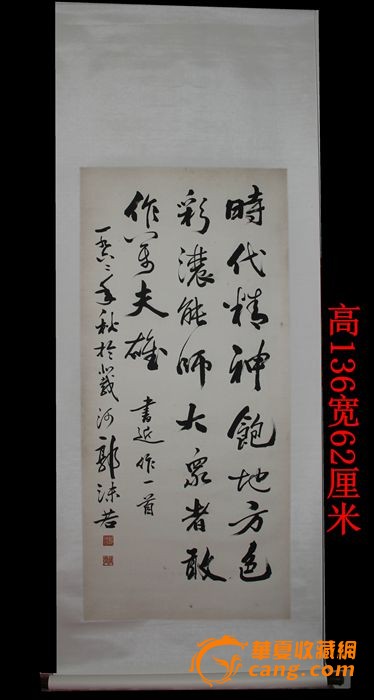 時代精神飽地方色
彩濃能師大衆者敢
作萬夫雄 書近作一首
一九六二年秋於北戴河 郭沫若
高136宽62厘米
華夏收藏網
cang.com